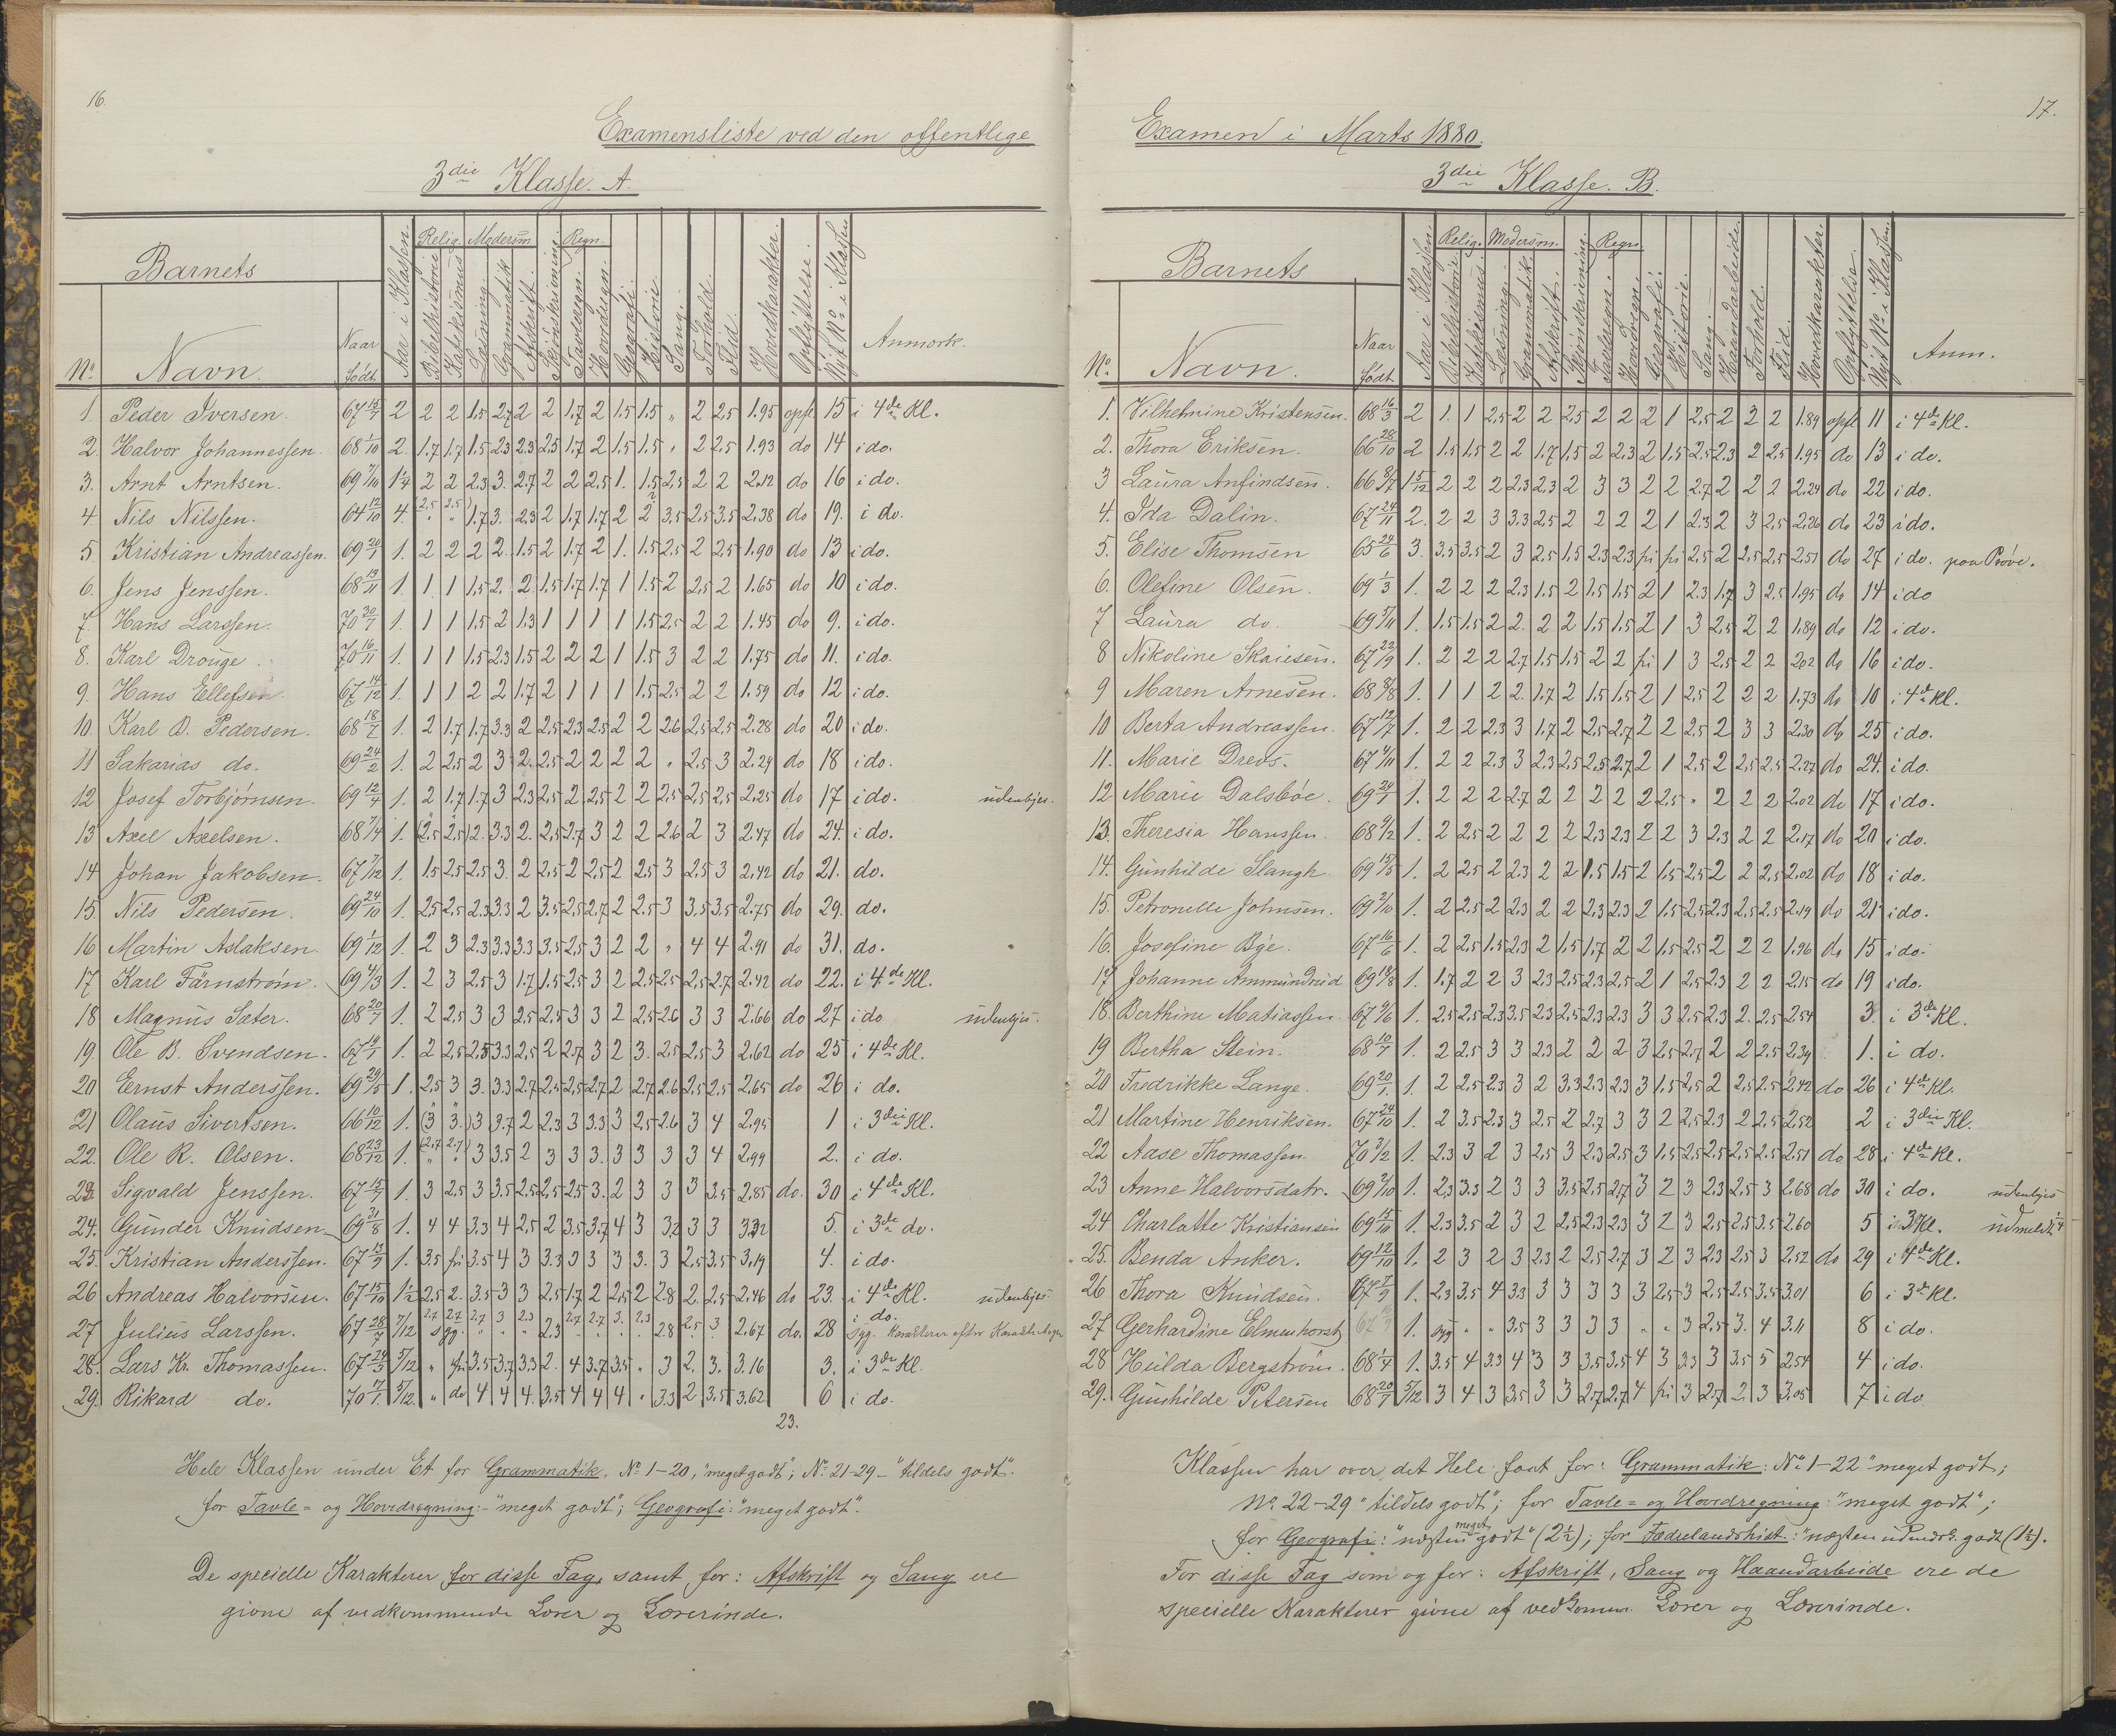 16.
Examensliste ved den offentlige
3die Klasse. A.
Barnets
No
Navn.
Naar født.
Aar i Klassen.
Relig.
Bibelhistorie
Katekismus
Modersm.
Læsning.
Grammatik
Afskrift.
Skjönskrivning.
Regn.
Tavleregn.
Hovedregn.
Geografi.
Historie
Sang.
Forhold.
Flid.
Hovedkarakter.
Opflyttelse.
Nyt No i Klassen
Anmærk.
1. Peder Iversen. 67 15/7 2 2 2 1.5 2.7 2 2 1.7 2 1.5 1.5 „ 2 2.5 1.95 opfl. 15 i 4de Kl.
2. Halvor Johannessen. 68 1/10 2. 1.7 1.7 1.5 2.3 2.3 2.5 1.7 2 1.5 1.5 „ 2 2.5 1.93 do 14 i do.
3. Arnt Arntsen. 69 7/10 1¼ 2 2 2.3 3. 2.7 2 2 2.5 1. 1.5 2.5 2 2 2.12 do 16 i do.
4 Nils Nilssen. 64 12/10 4. (2.5 2.5) 1.7 3. 2.3 2 1.7 1.7 2 2 3.5 2.5 3.5 2.38 do 19. i do.
5. Kristian Andreassen. 69 20/1 1. 2 2 2 2. 1.5 2 1.7 2 1. 1.5 2.5 2 2.5 1.90 do 13 i do.
6. Jens Jenssen. 68 13/11 1 1 1 1.5 2. 2 1.5 1.7 1.7 1 1.5 2 2.5 2 1.65 do 10 i do.
7. Hans Larssen. 70 30/7 1. 1 1 1.5 2 1.3 1 1 1 1 1.5 2.5 2 2 1.45 do 9. i do.
8. Karl Drouge. 70 16/11 1. 1 1 1.5 2.3 1.5 2 2 2 1 1.5 3 2 2 1.75 do 11. i do.
9. Hans Ellefsen 67 14/12 1. 1 1 2 2 1.7 2 1 1 1 1.5 2.5 2 2 1.59 do 12 i do.
10. Karl D. Pedersen. 68 18/7 1. 2 1.7 1.7 3.3 2 2.5 2.3 2.5 2 2 2.6 2.5 2.5 2.28 do 20 i do.
11 Sakarias do. 69 24/2 1. 2 2.5 2 3 2. 2.5 2 2 2 2 „ 2.5 3 2.29 do 18 i do.
12 Josef Torbjørnsen. 69 12/4 1. 2 1.7 1.7 3 2.3 2.5 2 2.5 2 2 2.5 2.5 2.5 2.25 do 17 i do. udenbyes.
13 Axel Axelsen. 68 7/4 1. (2.5 2.5) 2. 3.3 2. 2.5 2.7 3 2 2 2.6 2 3 2.47 do 24. i do.
14 Johan Jakobsen. 67 7/12 1. 1.5 2.5 2.5 3. 2 2.5 2 2.5 2 2.5 3 2.5 3 2.42 do 21. do.
15. Nils Pedersen. 69 24/10 1. 2.5 2.5 2.3 3.3 2 3.5 2.5 2.7 2 2.5 3 3.5 3.5 2.75 do 29. do.
16 Martin Aslaksen. 69 1/12 1. 2 3 2.3 3.3 3.3 3.5 2.5 3 2 2 „ 4 4 2.91 do 31. do.
17 Karl Färnström. 69 4/3 1. 2 3 2.5 3 1.7 1.5 2.5 3 2 2.5 2.5 2.5 2.7 2.42 do 22. i 4de Kl.
18 Magnus Sæter. 68 20/7 1. 2 2.5 3 3 2.5 2.5 3 3 2 2.5 2.6 3 3 2.66 do 27 i do udenbyes.
19. Ole B. Svendsen. 67 19/1 1. 2 2.5 2.5 3.3 2.5 2 2.7 3 2 3. 2.5 2.5 3 2.62 do 25 i 4de Kl.
20 Ernst Anderssen. 69 29/5 1. 2.5 3 3. 3.3 2.7 2.5 2.5 2.7 2 2.7 2.6 2.5 2.5 2.65 do 26 i do.
21 Olaus Sivertsen. 66 10/12 1. (3 3.) 3 3.7 2 2.3 3 3.3 3 2.5 2.6 3 4 2.95 1 i 3die Kl.
22. Ole R. Olsen. 68 23/12 1. (2.7 2.7) 3 3.5 2 3 3 3. 3 3 3 3 4 2.99 2. i do.
23. Sigvald Jenssen. 67 15/7 1. 3 2.5 3 3.5 2.5 2.5 2.5 3. 2 3 3 3 3.5 2.85 do. 30 i 4de Kl.
24. Gunder Knudsen 69 31/8 1. 4 4 3.3 4 2.5 2 3.5 3.7 4 3 3.2 3 3 3.32 5. i 3de do.
25. Kristian Anderssen. 67 13/9 1. 3.5 fri 3.5 4 3 3.3 3 3 3 3. 3 2.5 3.5 3.19 4. i do.
26 Andreas Halvorsen. 67 15/10 1½ 2.5 2. 3.5 3 3 2.5 1.7 2 2.5 2 2.8 2. 2.5 2.46 do 23. i 4de Kl. udenbyes
27 Julius Larssen. 67 28/7 7/12 2.7 2.7 2.7 3 2.3 2.3 2.7 2.7 3. 2.3 2.8 2.5 3 2.67 do. 28 i do.
syg. syg. Karakterer efter Karakterbogen
28. Lars Kr. Thomassen. 67 24/3 5/12 „ fri 3.5 3.7 3.3 2. 4 3.7 3.5 „ 3 2. 3. 3.16 3. i 3de Kl.
29. Rikard do. 70 17/1 5/12. „ do 4 4 4. 3.5 4 4 4 „ 3.3 2 3.5 3.62 6 i do.
23.
Hele Klassen under Et for Grammatik. No 1-20, "meget godt"; No 21-29 - "tildels godt".
for Tavle= og Hovedregning: - "meget godt"; Geografi: "meget godt".
De specielle Karakterer for disse Fag, samt for: Afskrift og Sang ere
givne af vedkommende Lærer og Lærerinde.
17.
Examen i Marts 1880.
3die Klasse. B.
Barnets
No.
Navn.
Naar født
Aar i Klassen
Relig.
Bibelhistorie
Katekismus
Modersm.
Læsning.
Grammatik
Afskrift.
Skjönskrivning.
Regn
Tavleregn.
Hovedregn.
Geografi.
Historie.
Sang.
Haandarbeide
Forhold.
Flid.
Hovedkarakter.
Opflyttelse.
Nyt No i Klassen.
Anm.
1. Vilhelmine Kristensen. 68 16/3 2 1. 1 2.5 2 2 2.5 2 2 2 1 2.5 2 2 2 1.89 opfl 11 i 4de Kl.
2. Thora Eriksen. 66 28/10 2 1.5 1.5 2 2 1.7 1.5 2 2.3 2 1.5 2.5 2.3 2 2.5 1.95 do 13 i do.
3 Laura Anfindsen. 66 8/7 1 5/12 2 2 2 2.3 2.3 2 3 3 2 2 2.7 2 2 2 2.24 do 22 i do.
4. Ida Dalin. 67 24/11 2. 2 2 3 3.3 2.5 2 2 2 2 1 2.3 2 3 2.5 2.26 do 23 i do.
5. Elise Thomsen 65 24/6 3. 3.5 3.5 2 3 2.5 1.5 2.3 2.3 fri fri 2.5 2 2.5 2.5 2.51 do 27 i do. paa Prøve.
6. Olefine Olsen. 69 1/3 1. 2 2 2 2.3 1.5 2 1.5 1.5 2 1 2.3 1.7 3 2.5 1.95 do 14 i do
7 Laura do. 69 5/11 1. 1.5 1.5 2 2. 2 2 1.5 1.5 2 1 3 2.5 2 2 1.89 do 12 i do.
8 Nikoline Skaiesen. 67 22/9 1. 2 2 2 2.7 1.5 1.5 2 2 fri 1 3 2.5 2 2 2.02 do 16 i do.
9 Maren Arnesen. 68 8/8 1. 1 1 2 2. 1.7 2 1.5 1.5 2 1 2.5 2 2 2 1.73 do 10 i 4de Kl.
10 Berta Andreassen. 67 12/7 1. 2 2 2.3 3 1.7 2 2.5 2.7 2 2 2.5 2 3 3 2.30 do 25 i do.
11. Marie Dreds. 67 9/11 1. 2 2 2.3 3 2.3 2.5 2.5 2.7 2 1 2.5 2 2.5 2.5 2.27 do 24. i do.
12 Marie Dalsböe. 69 24/1 1. 2 2 2 2.7 2 2 2 2 2 2.5 „ 2 2 2 2.02 do 17 i do.
13. Theresia Hanssen. 68 9/12 1. 2 2.5 2 2 2 2 2.3 2.3 2 2 3 2.3 2 2 2.17 do 20 i do.
14. Gunhilde Slangh. 69 13/5 1. 2 2.5 2 2.3 2 2 1.5 1.5 2 1.5 2.5 2 2 2.5 2.02 do 18 i do.
15. Petronelle Johnsen. 69 2/10 1. 2 2.5 2 2.3 2 2 2.3 2.3 2 1.5 2.5 2.3 2.5 2.5 2.19 do 21 i do.
16. Josefine Bye. 67 16/6 1. 2 2.5 1.5 2.3 2 1.5 1.7 2 2 1.5 2.5 2 2 2 1.96 do 15 i do.
17 Johanne Ammundreid 69 18/8 1. 1.7 2 2 3 2.3 2.5 2.3 2.5 2 1 2.5 2.3 2 2 2.15 do 19 i do.
18. Berthine Matiassen 67 9/6 1. 2.5 2.5 2.3 3.5 2.3 2.5 2.3 2.3 3 3 2.5 2.3 2. 2.5 2.54 3. i 3de Kl.
19 Bertha Stein. 68 10/7 1. 2 2.5 3 3 2.3 2 2 2 3 2.5 2.7 2 2 2.5 2.39 1. i do.
20 Fredrikke Lange. 69 20/1. 1. 2 2.5 2.3 3 2 3.3 2.3 2.3 3 1.5 2.5 2 2.5 2.5 2.42 do 26 i 4de Kl.
21 Martine Henriksen. 67 24/10 1. 2 3.5 2.3 3 2.5 2 2.7 3 3 2 2.5 2.3 2 2.5 2.52 2 i 3die Kl.
22 Aase Thomassen. 70 3/2 1. 2.3 3 2 3 2.5 3 2.3 2.5 3 1.5 2.5 2.5 2.5 2.5 2.51 do 28 i 4de Kl.
23 Anne Halvorsdatr. 69 2/10 1. 2.3 3.3 2 3 3 3.5 2.5 2.7 3 2 3 2.3 2.5 3 2.68 do 30 i do. udenbyes
24 Charlotte Kristiansen 69 15/10 1. 2.3 3.5 2 3 2 2.5 2.3 2.3 3 2 3 2.5 2.5 3.5 2.60 5 i 3 Kl. udmeldt 1/4
25. Benda Anker. 69 12/10 1. 2 3 2 3 2.3 2 2.5 2.7 3 2 3 2.3 2.5 3 2.52 do 29 i 4de Kl.
26 Thora Knudsen. 67 7/9 1. 2.3 3.5 4 3.3 3 3 3 3 3 2.5 3 2.5 2.5 3.5 3.01 6 i 3de Kl.
27 Gerhardine Elmenhorst 1. syg „ „ 3.5 3 3 3 3 „ „ 3 2.5 3. 4 3.11 8 i do.
28 Hulda Bergström. 68 1/4 1. 3.5 4 3.3 4 3 3 3.5 3.5 4 3 3.3 3 3.5 5 2.54 4 i do.
29. Gunhilde Petersen 68 20/7 5/12 3 4 3 3.5 3 3 2.7 2.7 4 fri 3 2.7 2. 3 3.05 7 i do
Klassen har over det Hele faat for: Grammatik: No 1-22 "meget godt;
No. 22-29 "tildels godt"; for Tavle= og Hovedregning: "meget godt";
for Geografi: "næsten meget godt" (2½); for Fædrelandshist.: "næsten udmrk. godt (1½).
For disse Fag som og for: Afskrift, Sang og Haandarbeide ere de
specielle Karakterer givne af vedkomm. Lærer og Lærerinde.